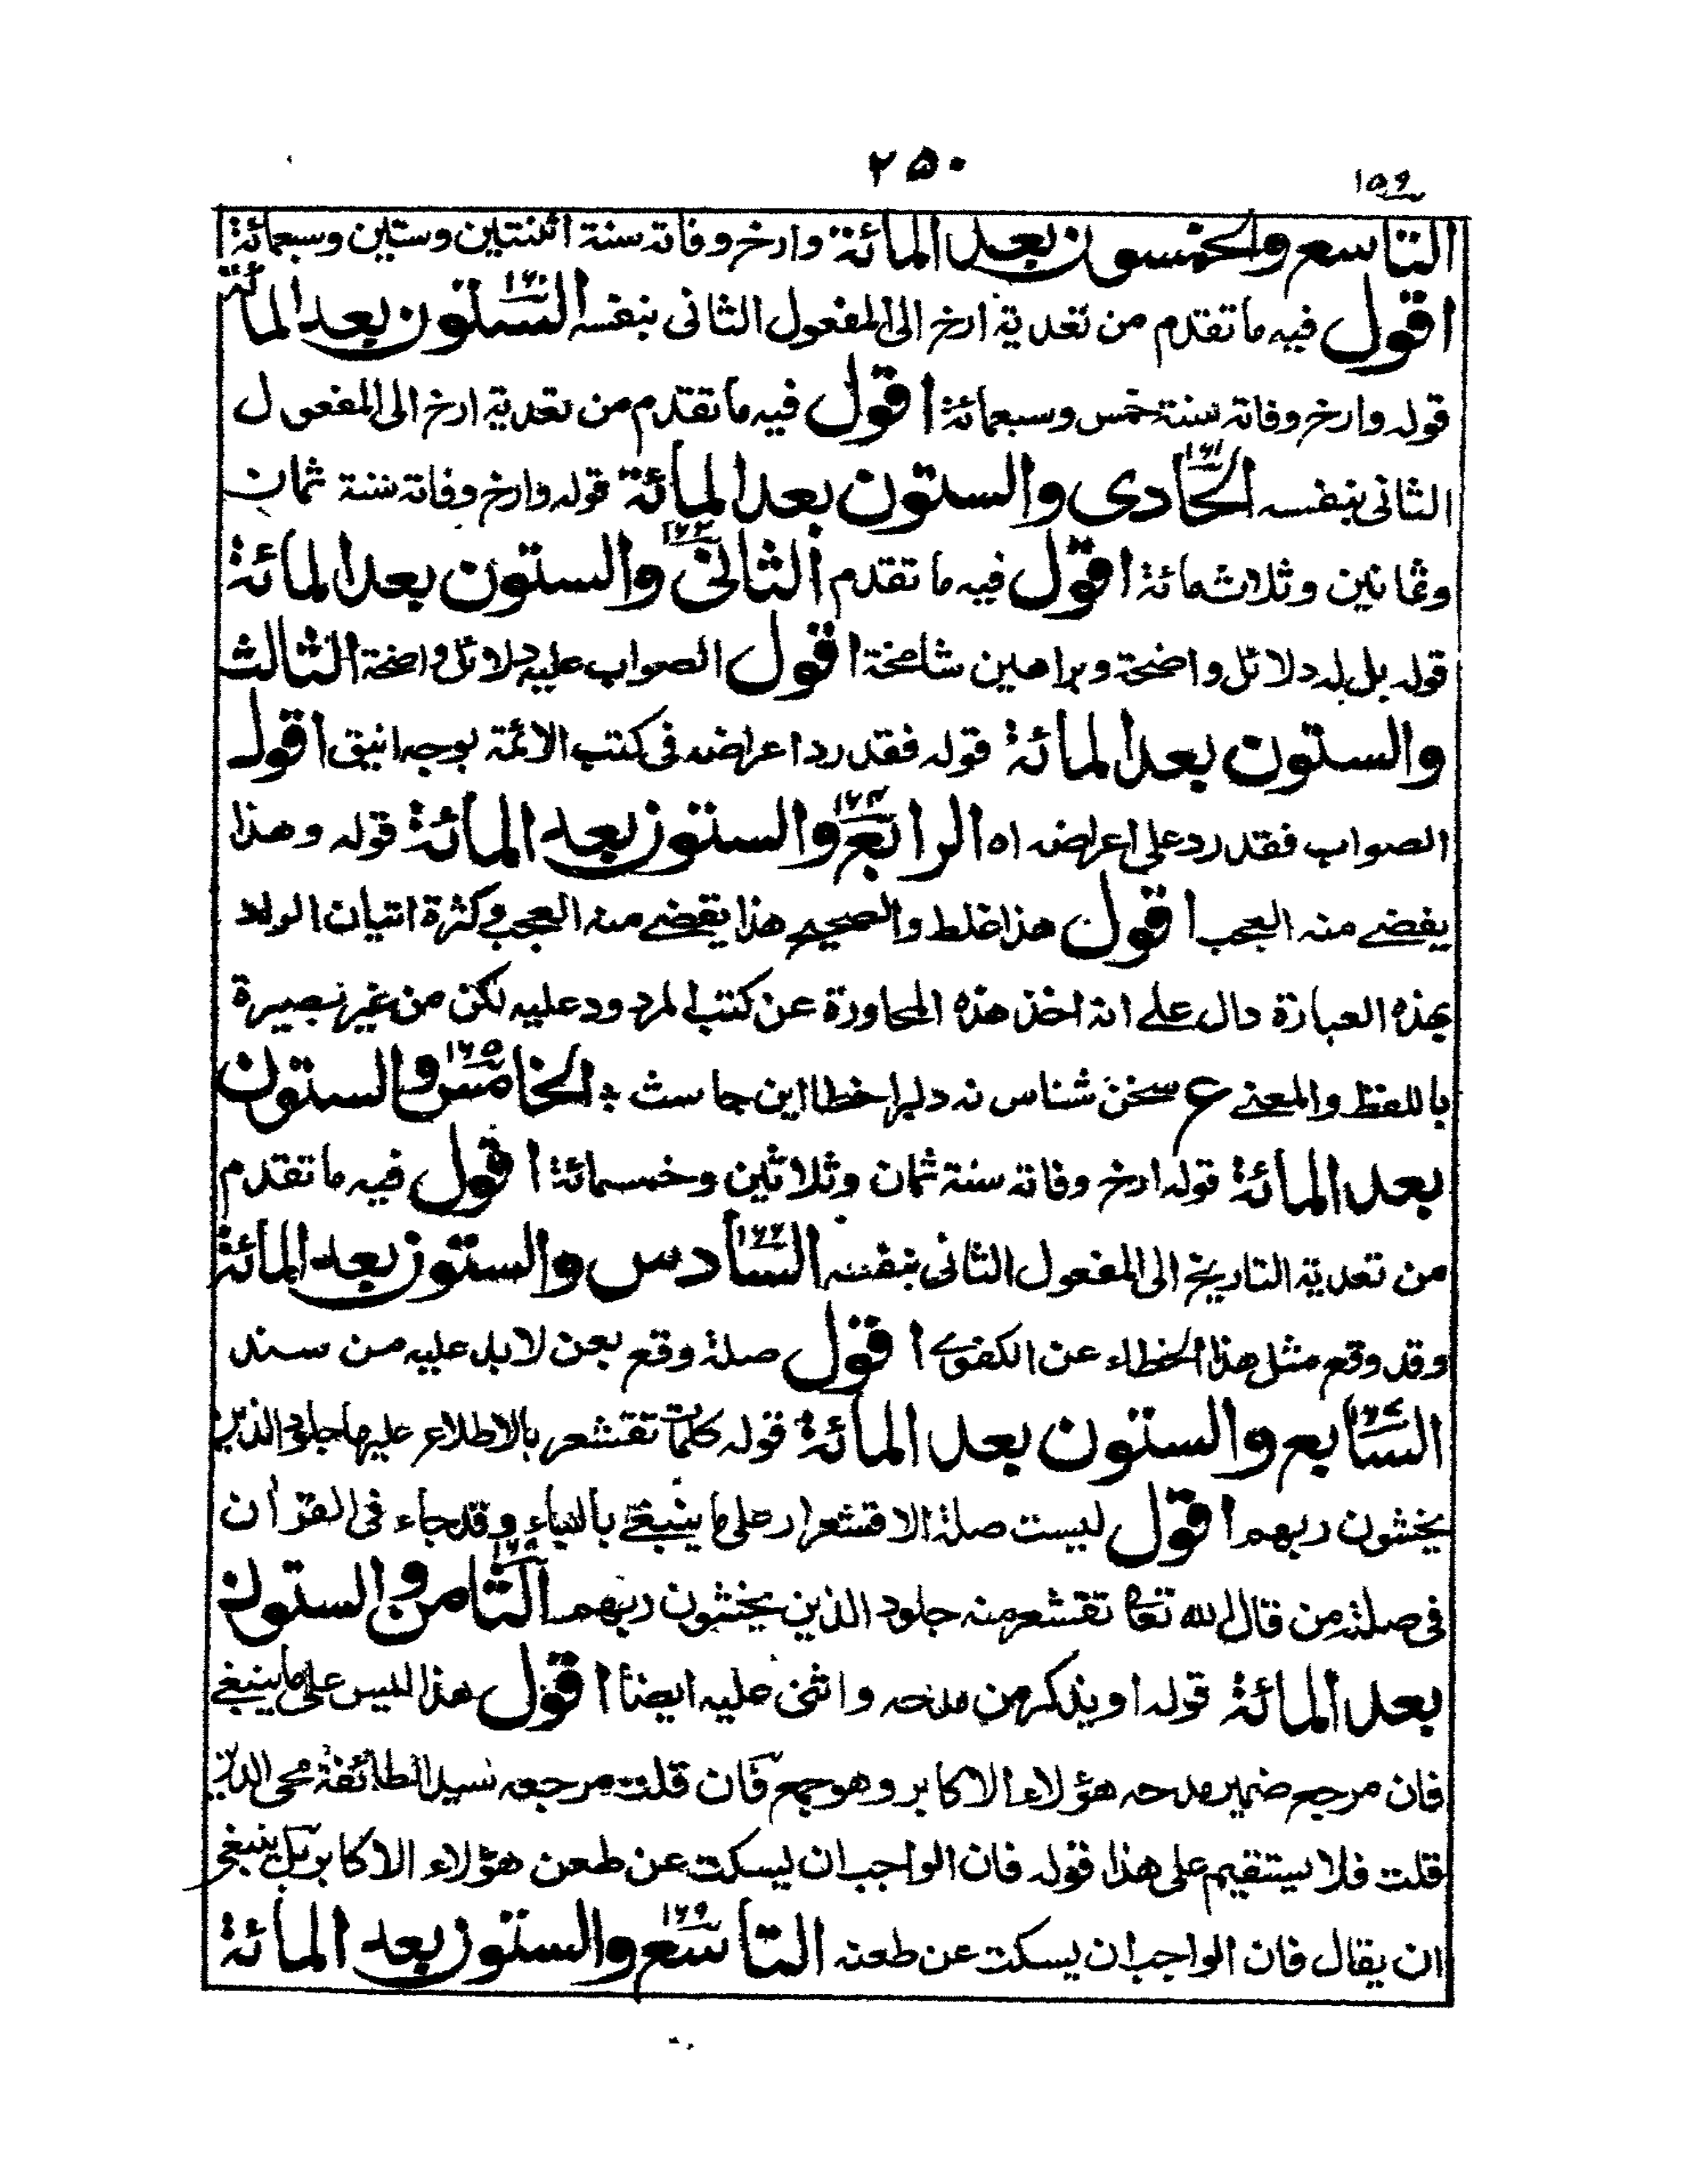 ٢٥٠
١٥٩
التاسع والخمسون بعد المائة وارخ وفاته سنة اثنتين وستين وسبعمائة
اقول فيه ما تقدم من تعدية ارخ الى المفعول الثانى بنفسه الستون بعد المائة
١٦٠
قوله وارخ وفاته سنة خمس وسبعمائة اقول فيه ما تقدم من تعدية ارخ الى المفعول
الثانى بنفسه الحادى والستون بعد المائة قوله وارخ وفاته سنة ثمان
١٦١
وثمانين وثلاث مائة اقول فيه ما تقدم الثانى والستون بعد المائة
١٦٢
قوله بل له دلائل واضحة وبراهين شامخة اقول الصواب عليه دلائل واضحة الثالث
والستون بعد المائة قوله فقد رد اعراضه فى كتب الائمة بوجه انيق اقول
الصواب فقد رد على اعراضه اه الرابع والستون بعد المائة قوله وهذا
١٦٤
يفضے منه العجب اقول هذا غلط والصحيح هذا يقضے منه العجب وكثرة اتيان الولد
بهذه العبارة دال علے انه اخذ هذه المحاورة عن كتب المردود عليه لكن من غير بصيرة
باللفظ والمعنے ع سخن شناس نه دلبرا خطا اين جاست ؞ الخامس والستون
١٦٥
بعد المائة قوله ارخ وفاته سنة ثمان وثلاثين وخمسمائة اقول فيه ما تقدم
من تعدية التاريخ الى المفعول الثانى بنفسه السادس والستون بعد المائة
١٦٦
وقد وقع مثل هذا الخطاء عن الكفوے اقول صلة وقع بعن لابد عليه من سند
السابع والستون بعد المائة قوله كلمات تقشعر بالاطلاع عليها جلود الذين
١٦٧
يخشون ربهم اقول ليست صلة الاقشعرار على ما ينبغے بالباء وقد جاء فى القرآن
فى صلته من قال الله تعا تقشعر منه جلود الذين يخشون ربهم الثامن والستون
١٦٨
بعد المائة قوله او يذكر من مدحه واثنى عليه ايضا اقول هذا ليس على ما ينبغے
فان مرجع ضمير مدحه هؤلاء الاكابر وهو جمع فان قلت مرجعه سيد الطائفة محى الدين
قلت فلا يستقيم على هذا قوله فان الواجب ان يسكت عن طعن هؤلاء الاكابر بل ينبغى
ان يقال فان الواجب ان يسكت عن طعنه التاسع والستون بعد المائة
١٦٩